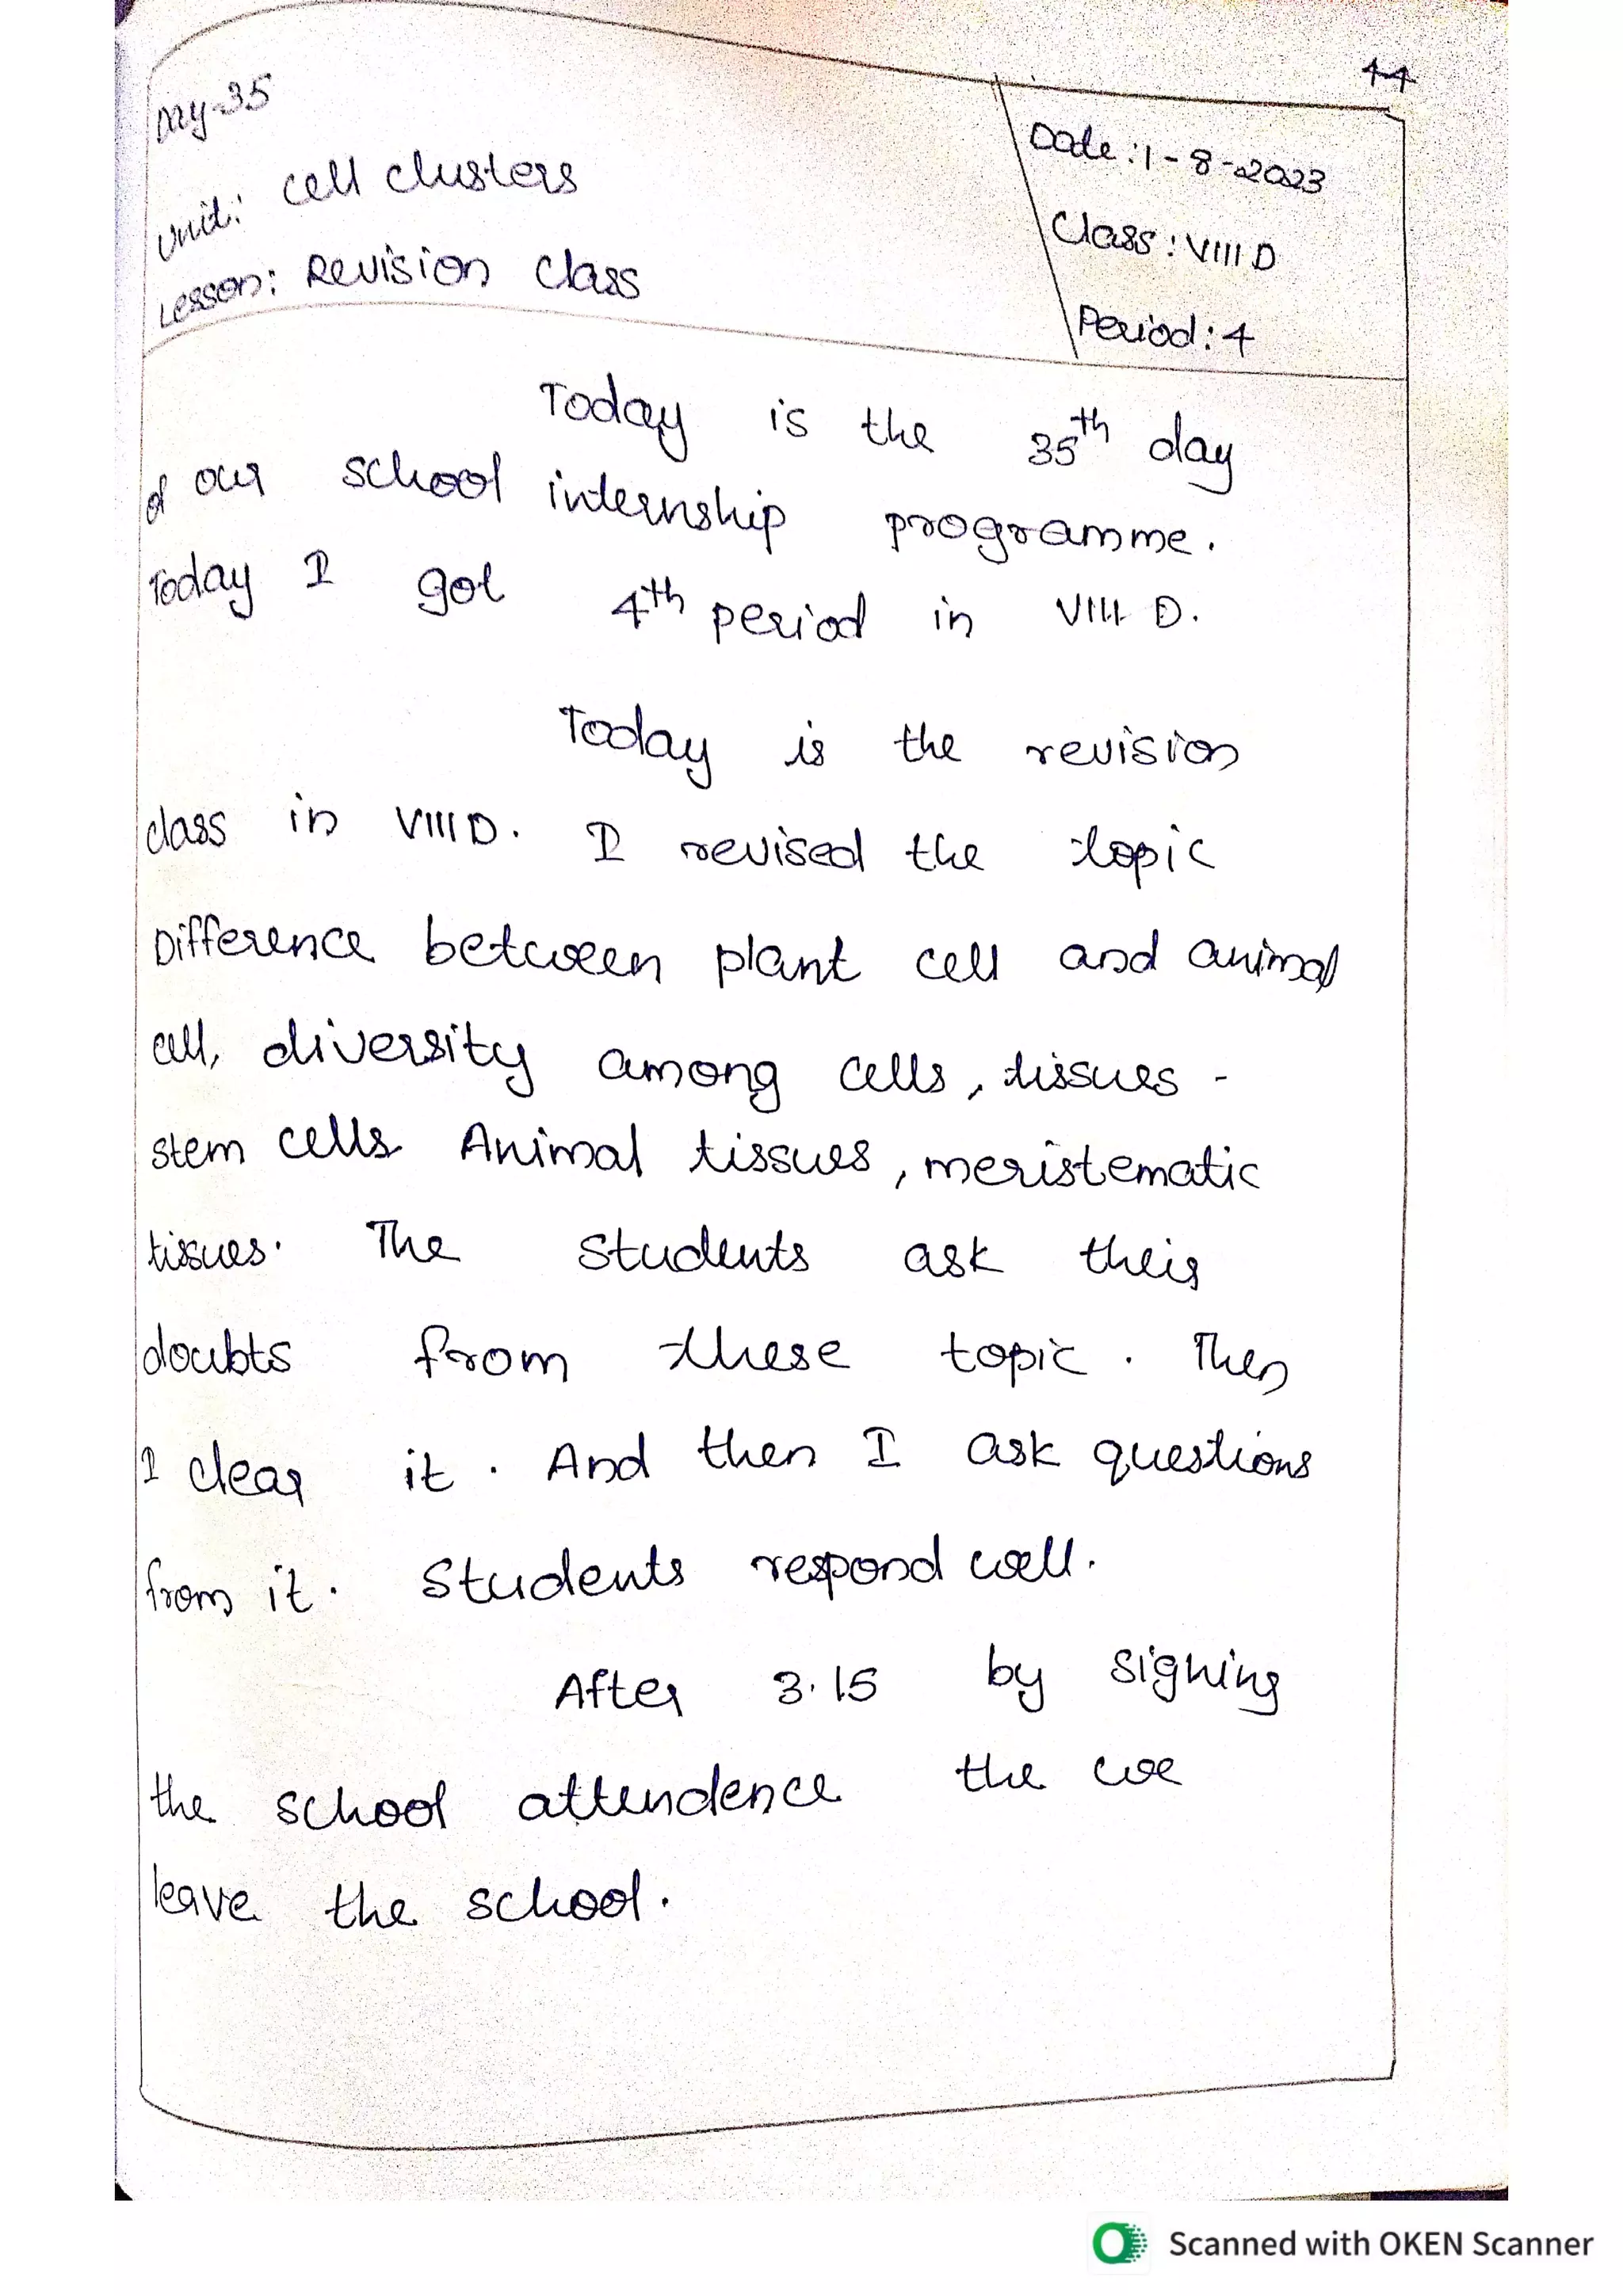 44
Day-35
Unit: Cell clusters
Lesson: Revision Class
Date: 1-8-2023
Class: VIII D
Period: 4
Today is the 35th day
of our school internship programme.
Today I got 4th period in VIII D.
Today is the revision
class in VIII D. I revised the topic
Difference between plant cell and animal
cell, diversity among cells, tissues -
stem cells Animal tissues, meristematic
tissues. The students ask their
doubts from these topic. Then
I clear it. And then I ask questions
from it. Students respond well.
After 3.15 by signing
the school attendence the we
leave the school.
Scanned with OKEN Scanner